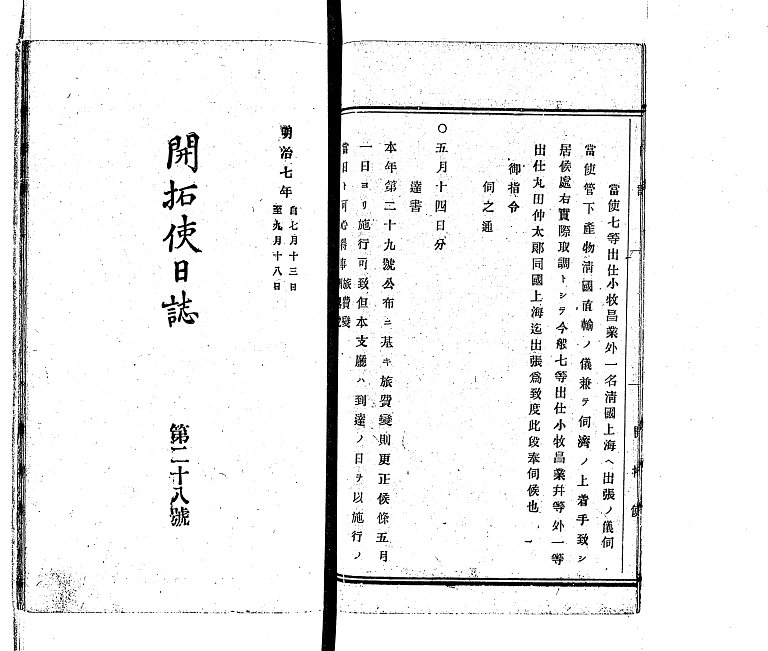 當使七等出仕小牧昌業外一名清國上海ヘ出張ノ儀伺
當使管下產物清國直輸ノ儀兼テ伺濟ノ上着手致シ
居候處右實際取調トシテ今般七等出仕小牧昌業幷等外一等
出仕丸田仲太郎同國上海迄出張爲致度此段奉伺候也
御指令
伺之通
○五月十四日分
達書
本年第二十九號公布ニ基キ旅費變則更正候條五月
一日ヨリ施行可致但本支廳ハ到達ノ日ヲ以施行ノ
明治七年
自七月十三日
至九月十八日
開拓使日誌
第二十八號